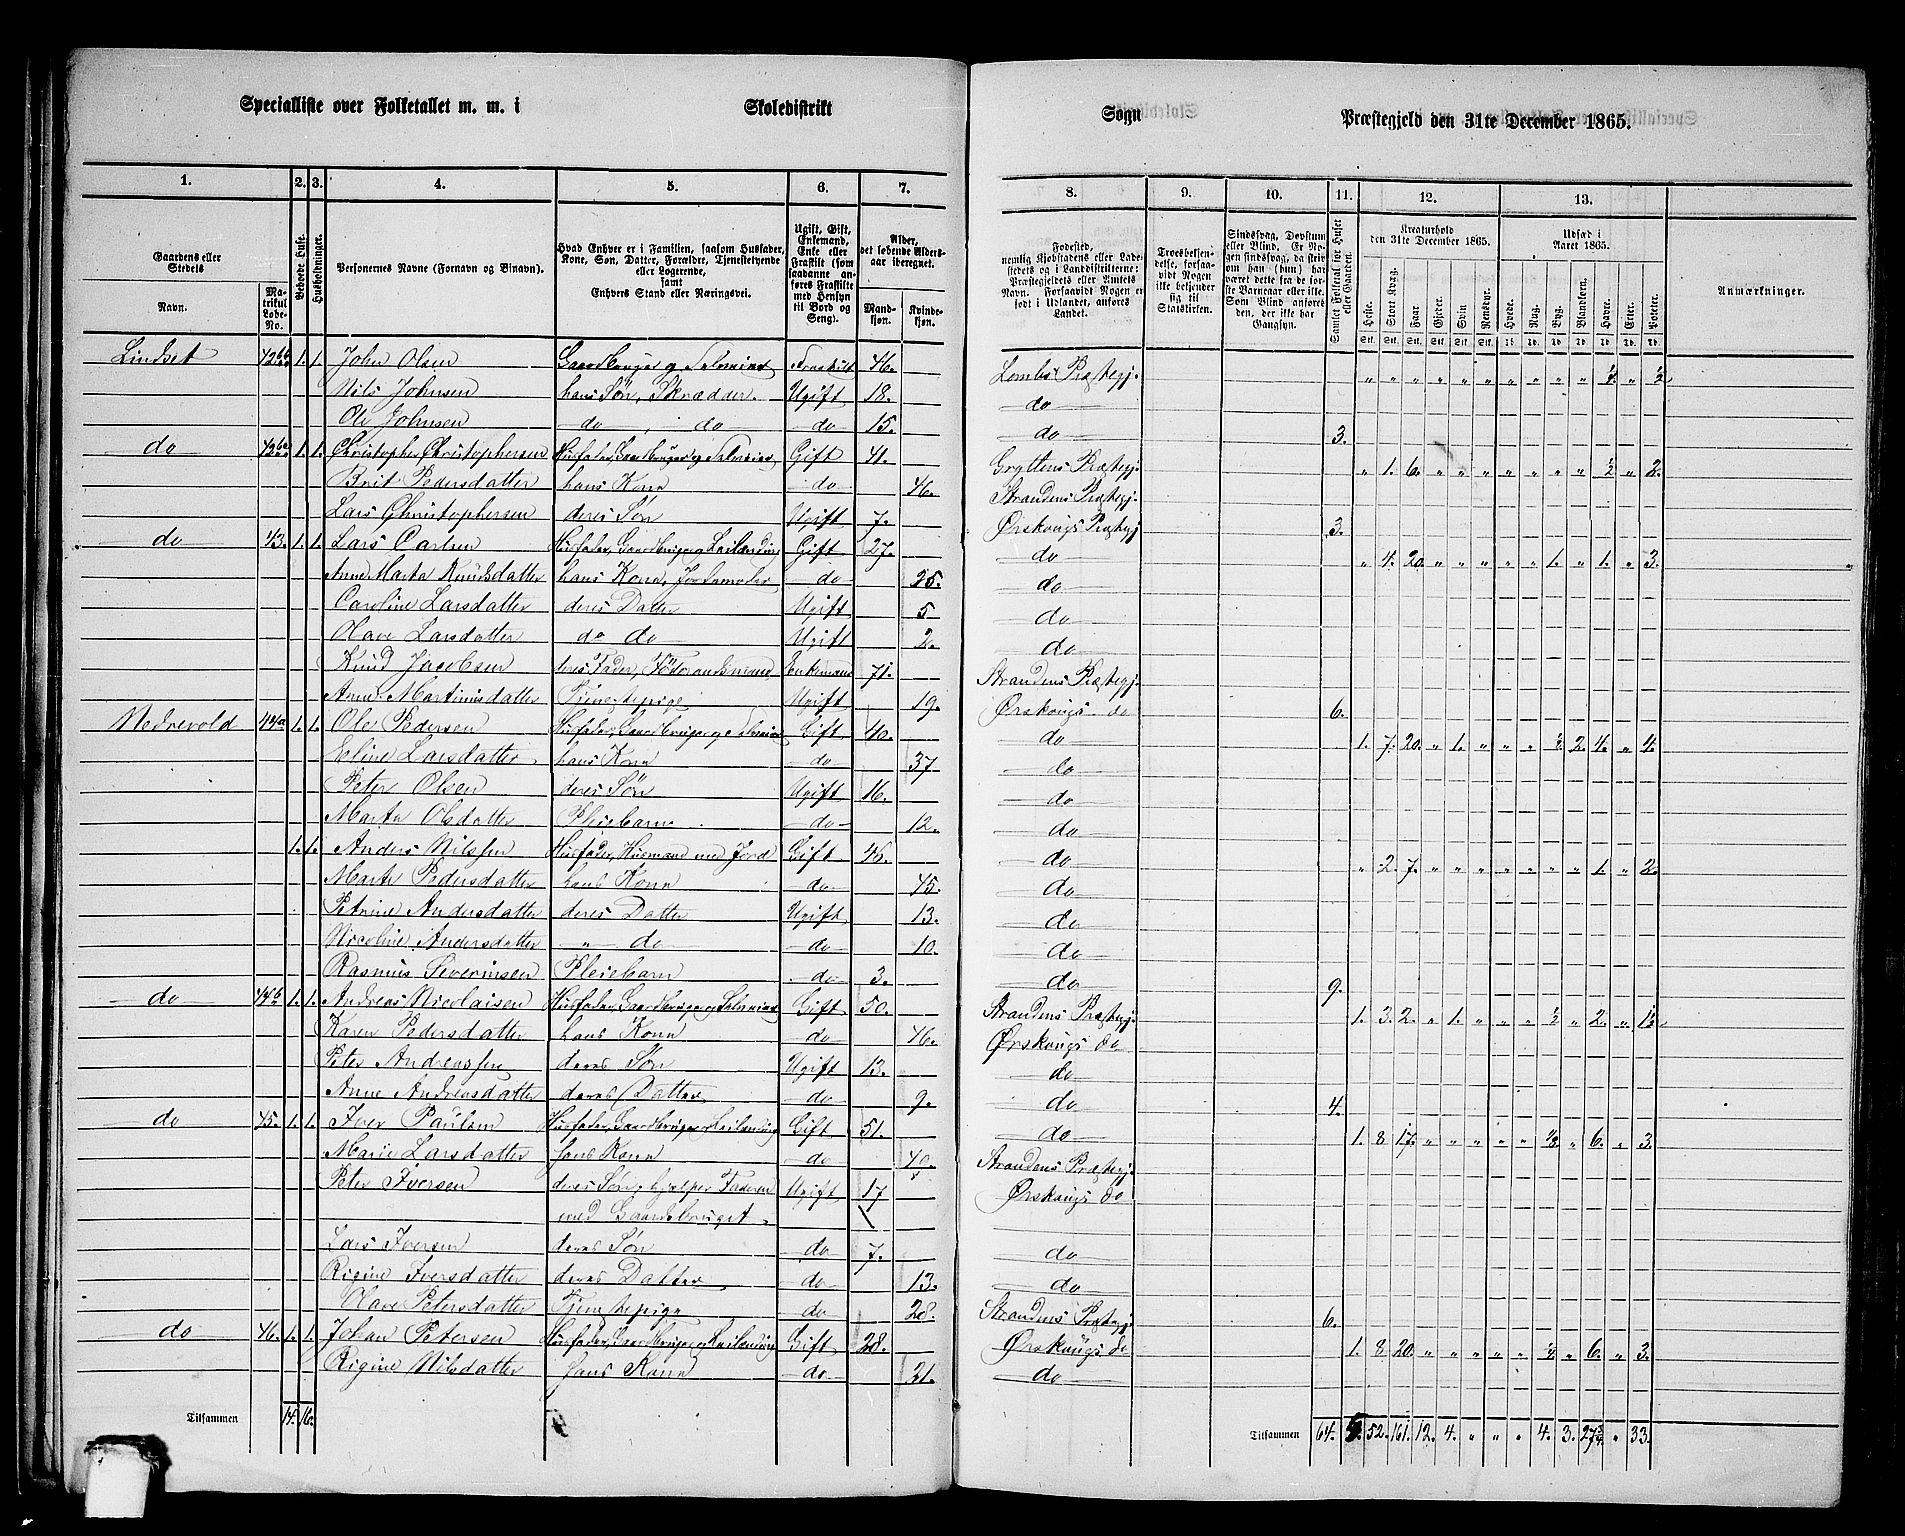 Specialliste over Folketallet m. m. i Skoledistrikt Sogn Præstegjeld den 31te December 1865.
1. 2. 3. 4. 5. 6. 7. 8. 9. 10. 11. 12. 13.
Gaardens eller Stedets
Navn.
Matrikul Løbe-No.
Beboede Huse.
Husholdninger.
Personernes Navne (Fornavn og Binavn).
Hvad Enhver er i Familien, saasom Husfader, Kone, Søn, Datter, Forældre, Tjenestetyende eller Logerende, samt Enhvers Stand eller Næringsvei.
Ugift, Gift, Enkemand, Enke eller Fraskilt (som saadanne anføres Fraskilte med Hensyn til Bord og Seng).
Alder, det løbende Aldersaar iberegnet.
Mandkjøn.
Kvindekjøn.
Fødested, nemlig Kjøbstadens eller Ladestedets og i Landdistrikterne: Præstegjeldets eller Amtets Navn. Forsaavidt Nogen er født i Udlandet, anføres Landet.
Troesbekjendelse, forsaavidt Nogen ikke bekjender sig til Statskirken.
Sindssvag, Døvstum eller Blind. Er Nogen sindssvag, da skrives om han (hun) har været dette fra de første Barneaar eller ikke. Som Blind anføres den, der ikke har Gangsyn.
Samlet Folketal for Huset eller Gaarden.
Kreaturhold den 31te December 1865.
Heste. Stort Kvæg. Faar. Gjeder. Svin. Rensdyr.
Udsæd i Aaret 1865.
Hvede. Rug. Byg. Blandkorn. Havre. Erter. Poteter.
Anmærkninger.
Lindset 42 1. 1. John Olsen Gaardbruger og Selveier Fraskilt 46. Lombs Præstegj. " " " " " " " " " " ½ " ½
Nils Johnsen hans Søn, Skrædder. Ugift 18. do
Ole Johnsen do , do do 15. do 3.
do 42 1. 1. Christopher Christophersen Husfader, Gaardbruger og Selveier Gift 41. Gryttens Præstegj. " 1. 6. " " " " " " " ½ " 2.
Brit Pedersdatter hans Kone do 46. Strandens Præstegj.
Lars Christophersen deres Søn Ugift 7. Ørskougs Præstegj 3.
do 43. 1. 1. Lars Carlsen Husfader, Gaardbruger og Leilænding Gift 27. do " 4. 20. " " " " " 1. " 1. " 3.
Anne Marta Knudsdatter hans Kone, Jordemoder do 25. do
Caroline Larsdatter deres Datter Ugift 5 do
Olave Larsdatter do do Ugift 2. do
Knud Jacobsen deres Fader, Føderaadsmand Enkemand 71. Strandens Præstegj.
Anne Martinusdatter Tjenestepige Ugift 19. Ørskougs do 6.
Nedrevold 44a 1. 1. Ole Pedersen Husfader, Gaardbruger og Selveier Gift 40. do 1. 7. 20. " 1. " " " ½ 2. 4. " 4.
Eline Larsdatter hans Kone do 37 do
Peter Olsen deres Søn Ugift 16. do
Marta Olsdatter Pleiebarn do 12. do
1. 1. Anders Nilssen Husfader, Husmand med Jord Gift 46. do " 2. 7. " " " " " " " 1. " 2.
Marte Pedersdatter hans Kone do 45. do
Petrine Andersdatter deres Datter Ugift 13. do
Nicoline Andersdatter " do do 10. do
Rasmus Severinsen Pleiebarn do 3. do 9.
do 44b 1. 1. Andreas Nicolaisen Husfader, Gaardbruger og Selveier Gift 50. Strandens Præstegj. 1. 3. 2. " 1. " " " ½ " 2. " 1½
Karen Pedersdatter hans Kone do 46. Ørskougs do
Peter Andreassen deres Søn Ugift 13. do
Anne Andreasdatter deres Datter do 9. do 4.
do 45. 1. 1. Iver Paulsen Husfader, Gaardbruger og Leilænding Gift 51. do 1. 8 17. " " " " " " 6. " 3.
Marie Larsdatter hans Kone do 40. Strandens Præstegj.
Peter Iversen deres Søn, hjælper Faderen Ugift 17 Ørskougs do
med Gaardsbruget.
Lars Iversen deres Søn do 7. do
Rigine Iversdatter deres Datter do 13. do
Olave Petersdatter Tjenestepige do 28. Strandens Præstegj. 6.
do 46. 1. 1. Johan Petersen Husfader, Gaardbruger og Leilænding Gift 28. Ørskougs do 1. 8. 20. " " " " " " 6. " 3.
Rigine Nilsdatter hans Kone do 21. do
Tilsammen 14. 16. Tilsammen 64. 52. 161. 12. 4. " " " 4. 3. 27¾ " 33.